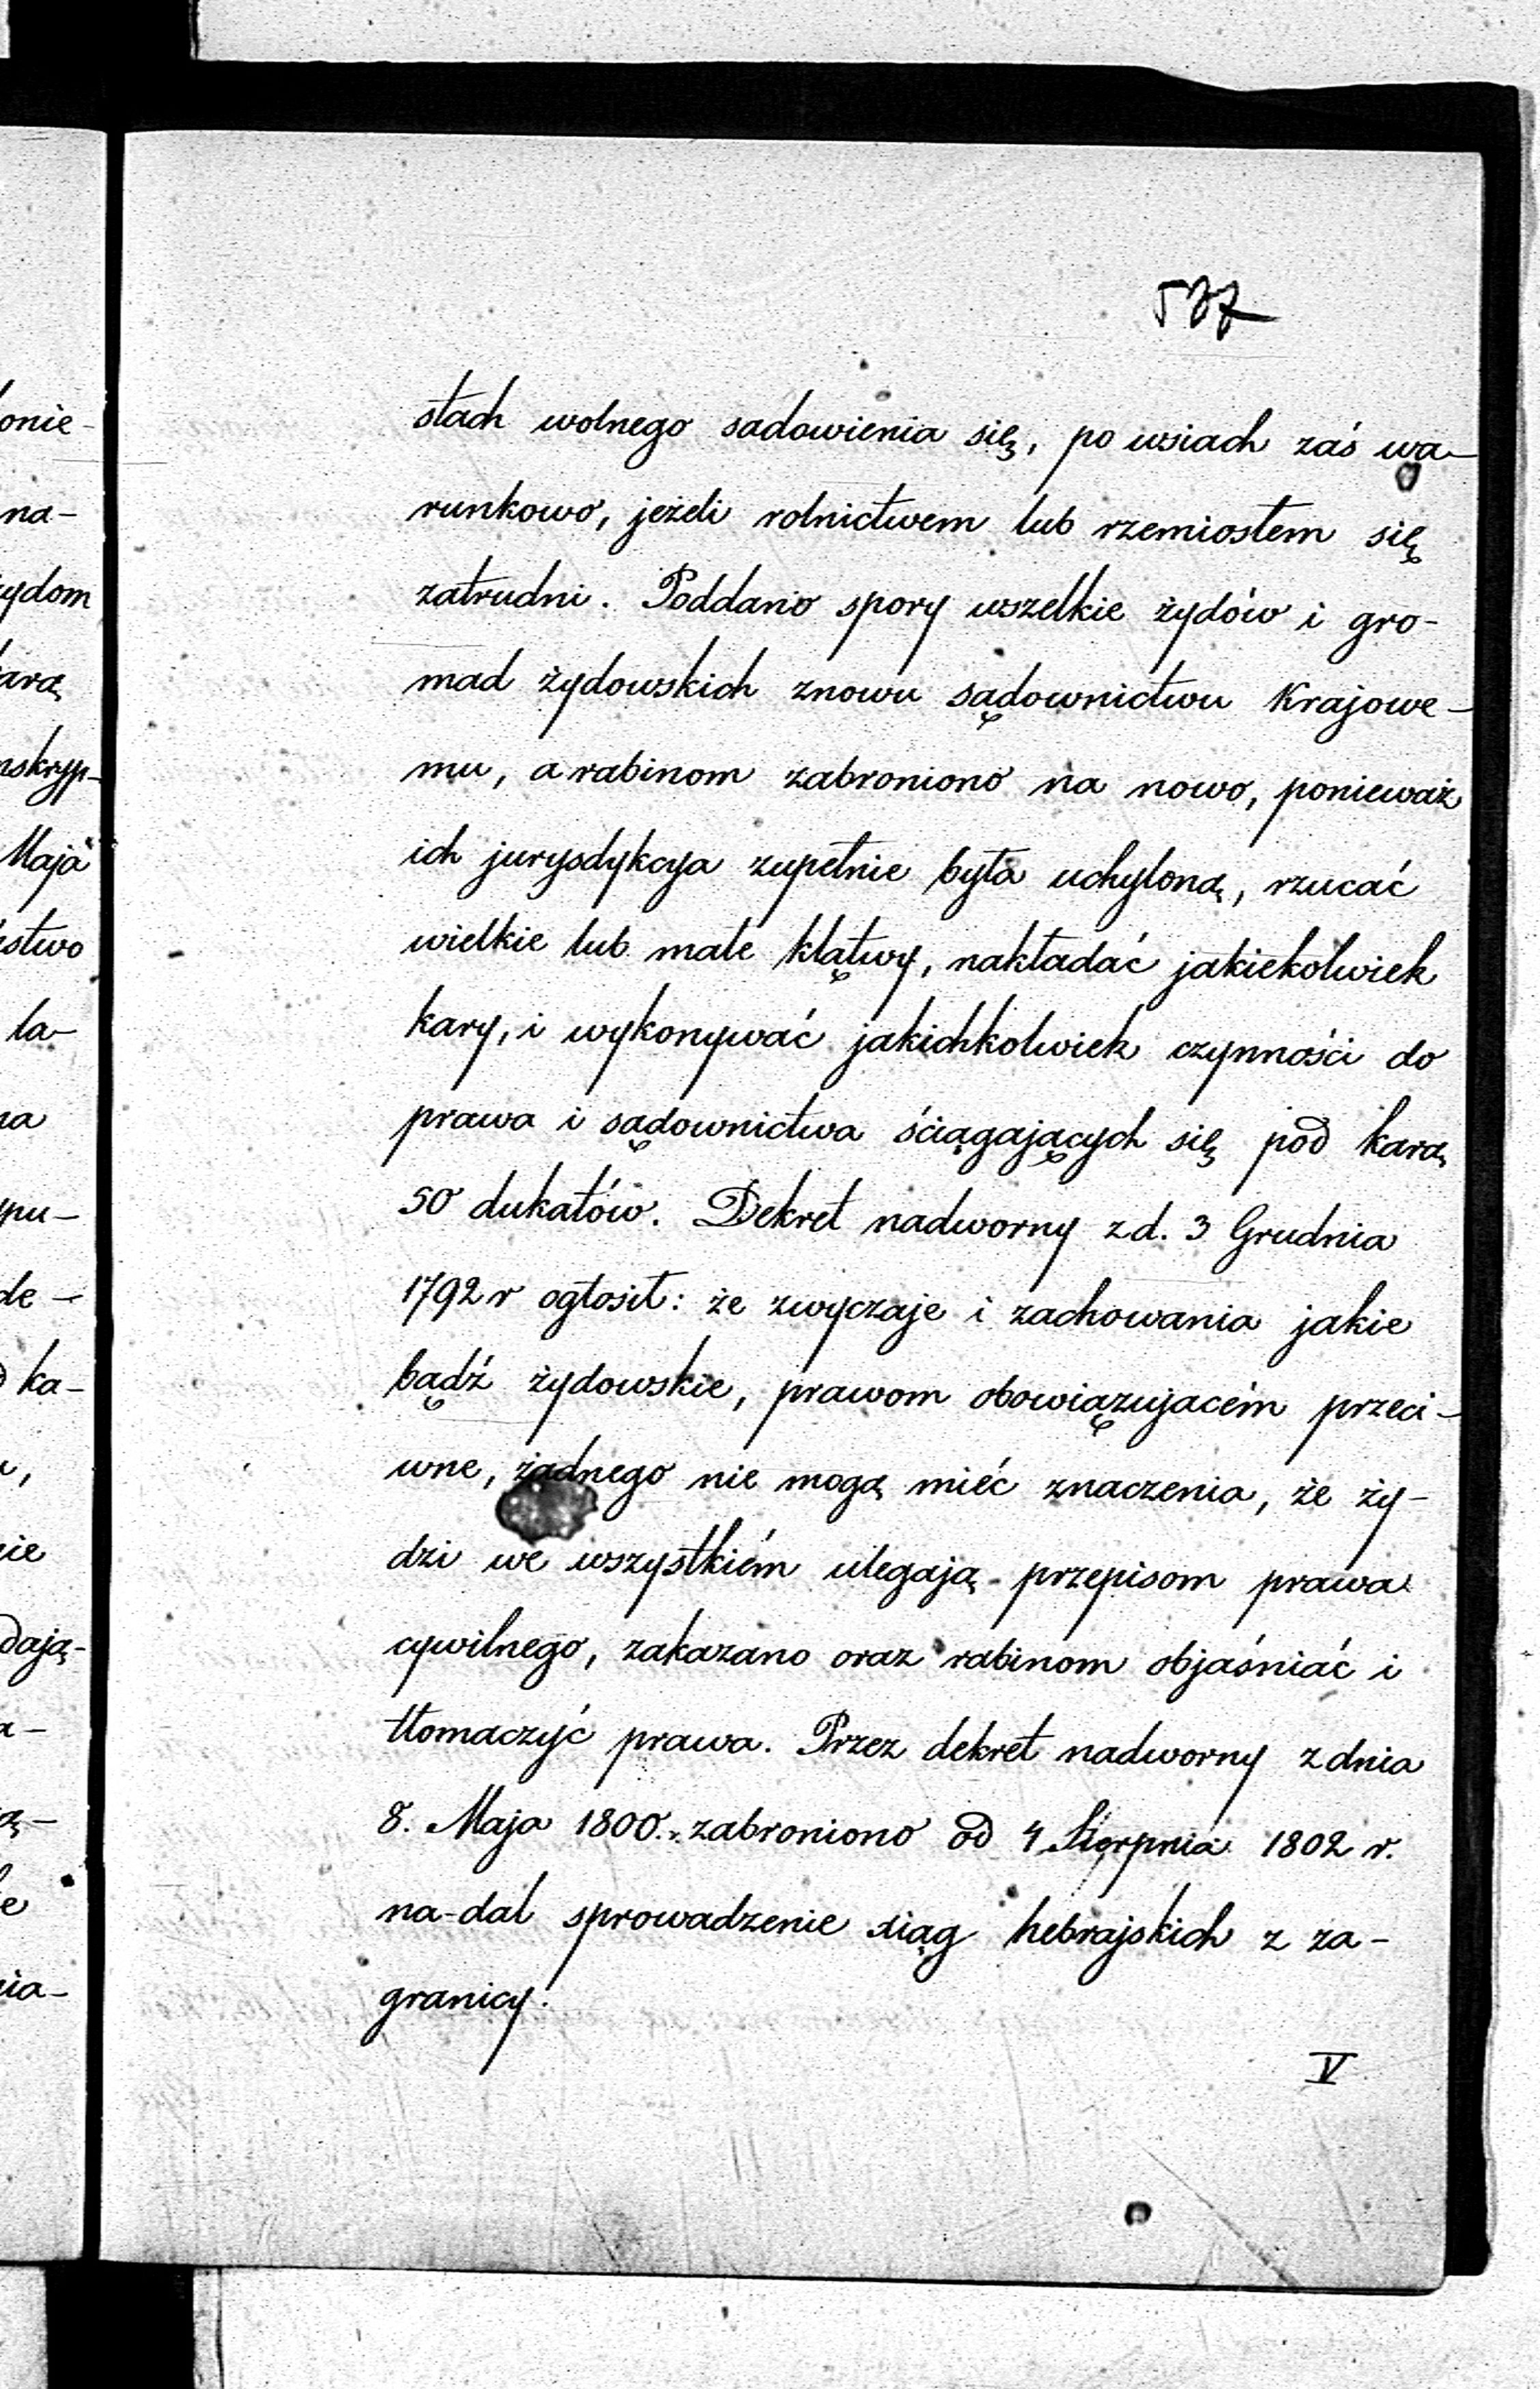 stach wolnego sadowienia się, po wsiach zaś wa-
runkowo, jeżeli rolnictwem lub rzemiosłem się
zatrudni. Poddano spory wszelkie żydów i gro-
mad żydowskich znowu sądownictwu Krajowe-
mu, a rabinom zabroniono na nowo, ponieważ
ich jurysdykcya zupełnie była uchyloną, rzucać
wielkie lub małe klątwy, nakładać jakiekolwiek
kary, i wykonywać jakichkolwiek czynności do
prawa i sądownictwa ściągających się pod karą
50 dukatów. Dekret nadworny z d. 3 Grudnia
1792 r ogłosił: że zwyczaje i zachowania jakie
bądź żydowskie, prawom obowiązujacém przeci-
wne, żadnego nie mogą mieć znaczenia, że ży-
dzi we wszystkiém ulegają przepisom prawa
cywilnego, zakazano oraz rabinom objaśniać i
tłomaczyć prawa. Przez dekret nadworny z dnia
8. Maja 1800. zabroniono od 4 Sierpnia 1802 r.
na-dal sprowadzenie xiąg hebrajskich z za-
granicy.
V
onie-
na-
żydom
arą
nskryp-
Maja
stwo
la-
na
pu-
de-
ka-
nie
dają-
nia-